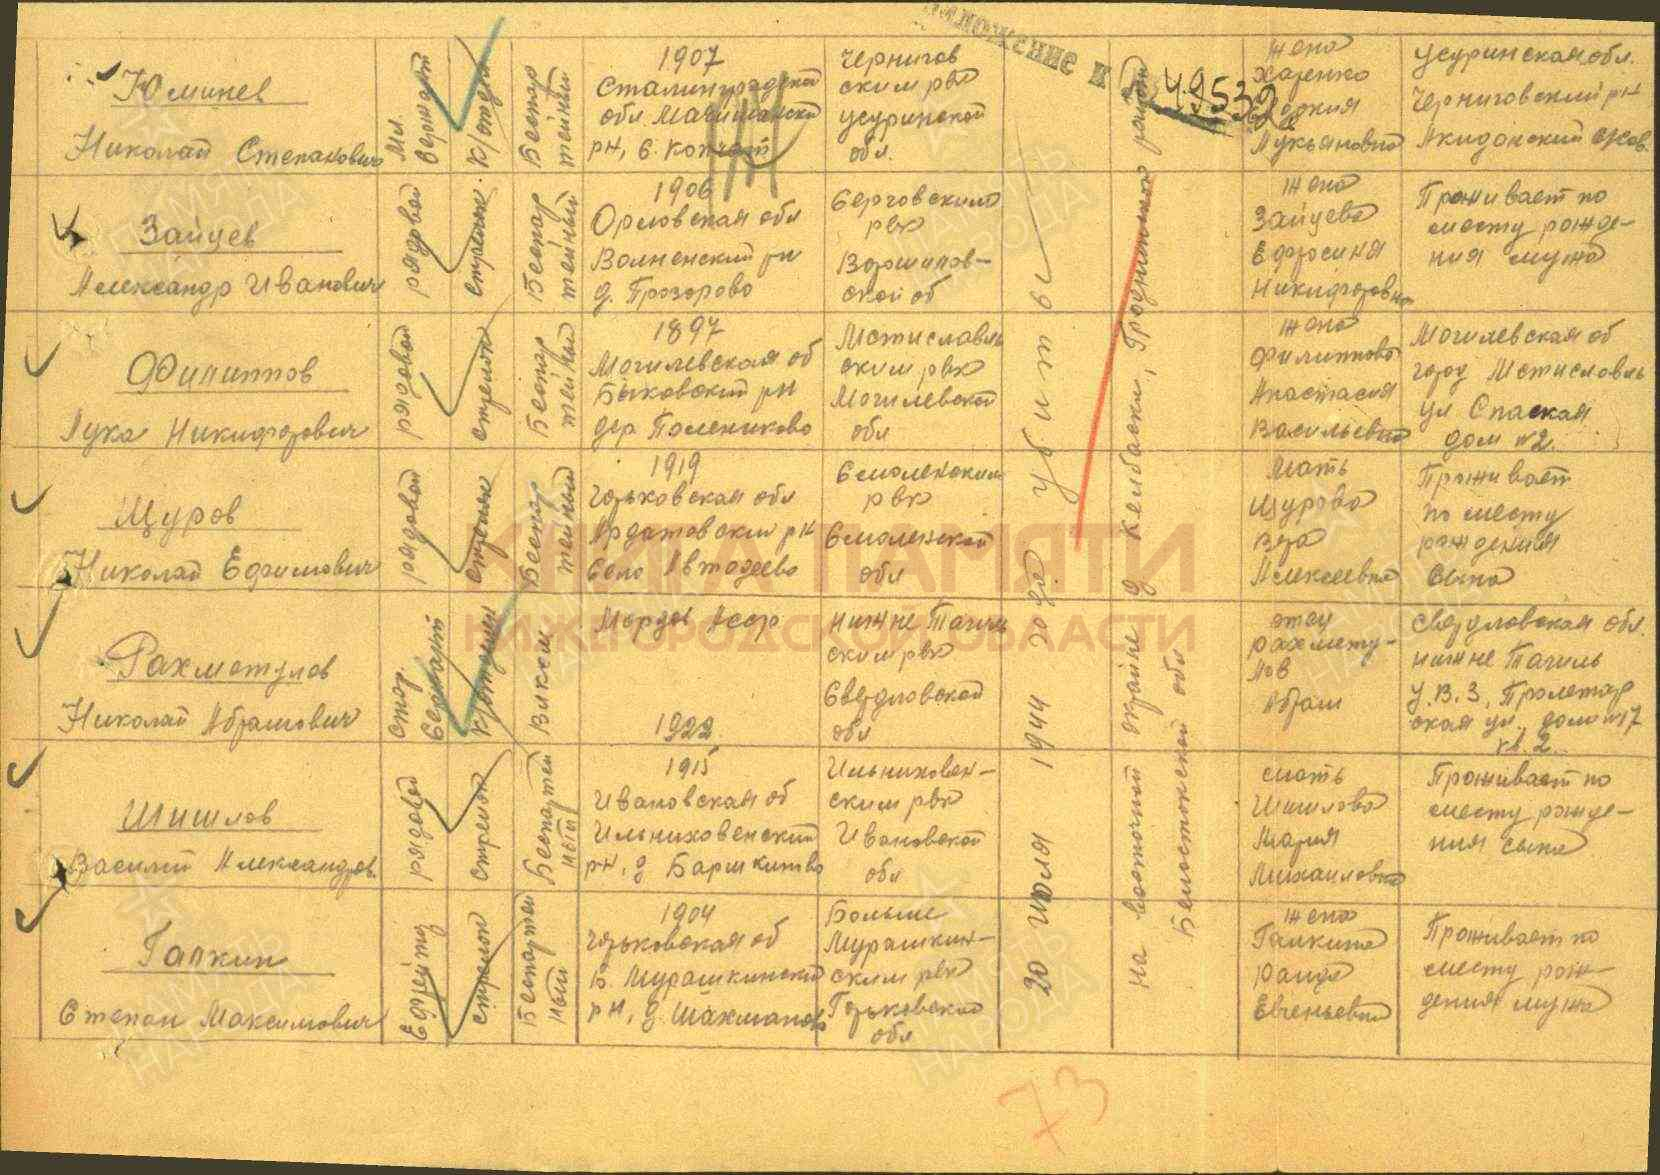 49539
Юминев
Николай Степанович
Мл.
Сержант
К/отдел
Беспар
тейный
1907
Сталинградской
обл.
рн, с.
Чернигов
ским рвк
Усуринской
обл.
жена
Харенко
Лукьяновна
Усуринская обл.
Черниговский рн
Зайцев
Александр Иванович
рядовой
стрелок
Беспар
тейный
1906
Орловская обл
Волненский рн
д. Прозорово
Серговским
рвк
Воршилов-
ской об
жена
Зайцева
Ефросиния
Никифоровна
Проживает по
месту рожде-
ния мужа
Филиппов
Лука Никифорович
рядовой
стрелок
Беспар
тейный
1897
Могилевская об
Быховский рн
дер
Мстиславль
ским рвк
Могилевской
обл
жена
Филиппова
Анастасия
Васильевна
Могилевская об
город Мстиславль
ул Спаская
дом №2
Щуров
Николай Ефимович
рядовой
стрелок
Беспар
тейный
1919
Горьковская обл
Ардатовский рн
село Автодеево
Смоленским
рвк
Смоленской
обл
мать
Щурова
Вера
Алексеевна
Проживает
по месту
рождения
сына
Рахметулов
Николай Абрамович
Стар.
Сержант
К/отделен
Влксм
Мордов Асср
1922
Нижне Тагиль
ским рвк
Свердловской
обл
отец
Рахмету-
лов
Абрам
Свердловская обл.
Нижне Тагиль
У.В.З, Пролетар
ская ул., дом №17
кв. 2
Шишлов
Василий Александров.
рядовой
стрелок
Беспартей
ный
1915
Ивановская об
Ильниховенский
рн, д
Ильниховен-
ским рвк
Ивановской
обл
мать
Шишлова
Мария
Михаиловна
Проживает по
месту рожде-
ния сына
Галкин
Степан Максимович
Ефрейтор
стрелок
Беспартей
ный
1904
Горьковская об
Б. Мурашкинский
рн, д. Шахманово
Больше
Мурашкин-
ским рвк
Горьковской
обл
жена
Галкина
Раида
Евгеньевна
Проживает по
месту рож-
дения мужа
убиты
20 июля 1944 года
на восточной окраине д Келбаски, Гродненский район
Белостокской обл
73
КНИГА ПАМЯТИ
НИЖЕГОРОДСКОЙ ОБЛАСТИ
ПАМЯТЬ
НАРОДА